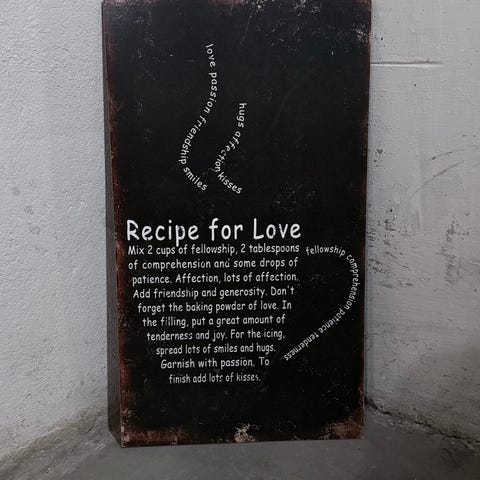 love passion friendship smiles
hugs affection kisses
Recipe for Love
Mix 2 cups of fellowship, 2 tablespoons
of comprehension and some drops of
patience. Affection, lots of affection.
Add friendship and generosity. Don't
forget the baking powder of love. In
the filling, put a great amount of
tenderness and joy. For the icing,
spread lots of smiles and hugs.
Garnish with passion. To
finish add lots of kisses.
fellowship comprehension patience tenderness